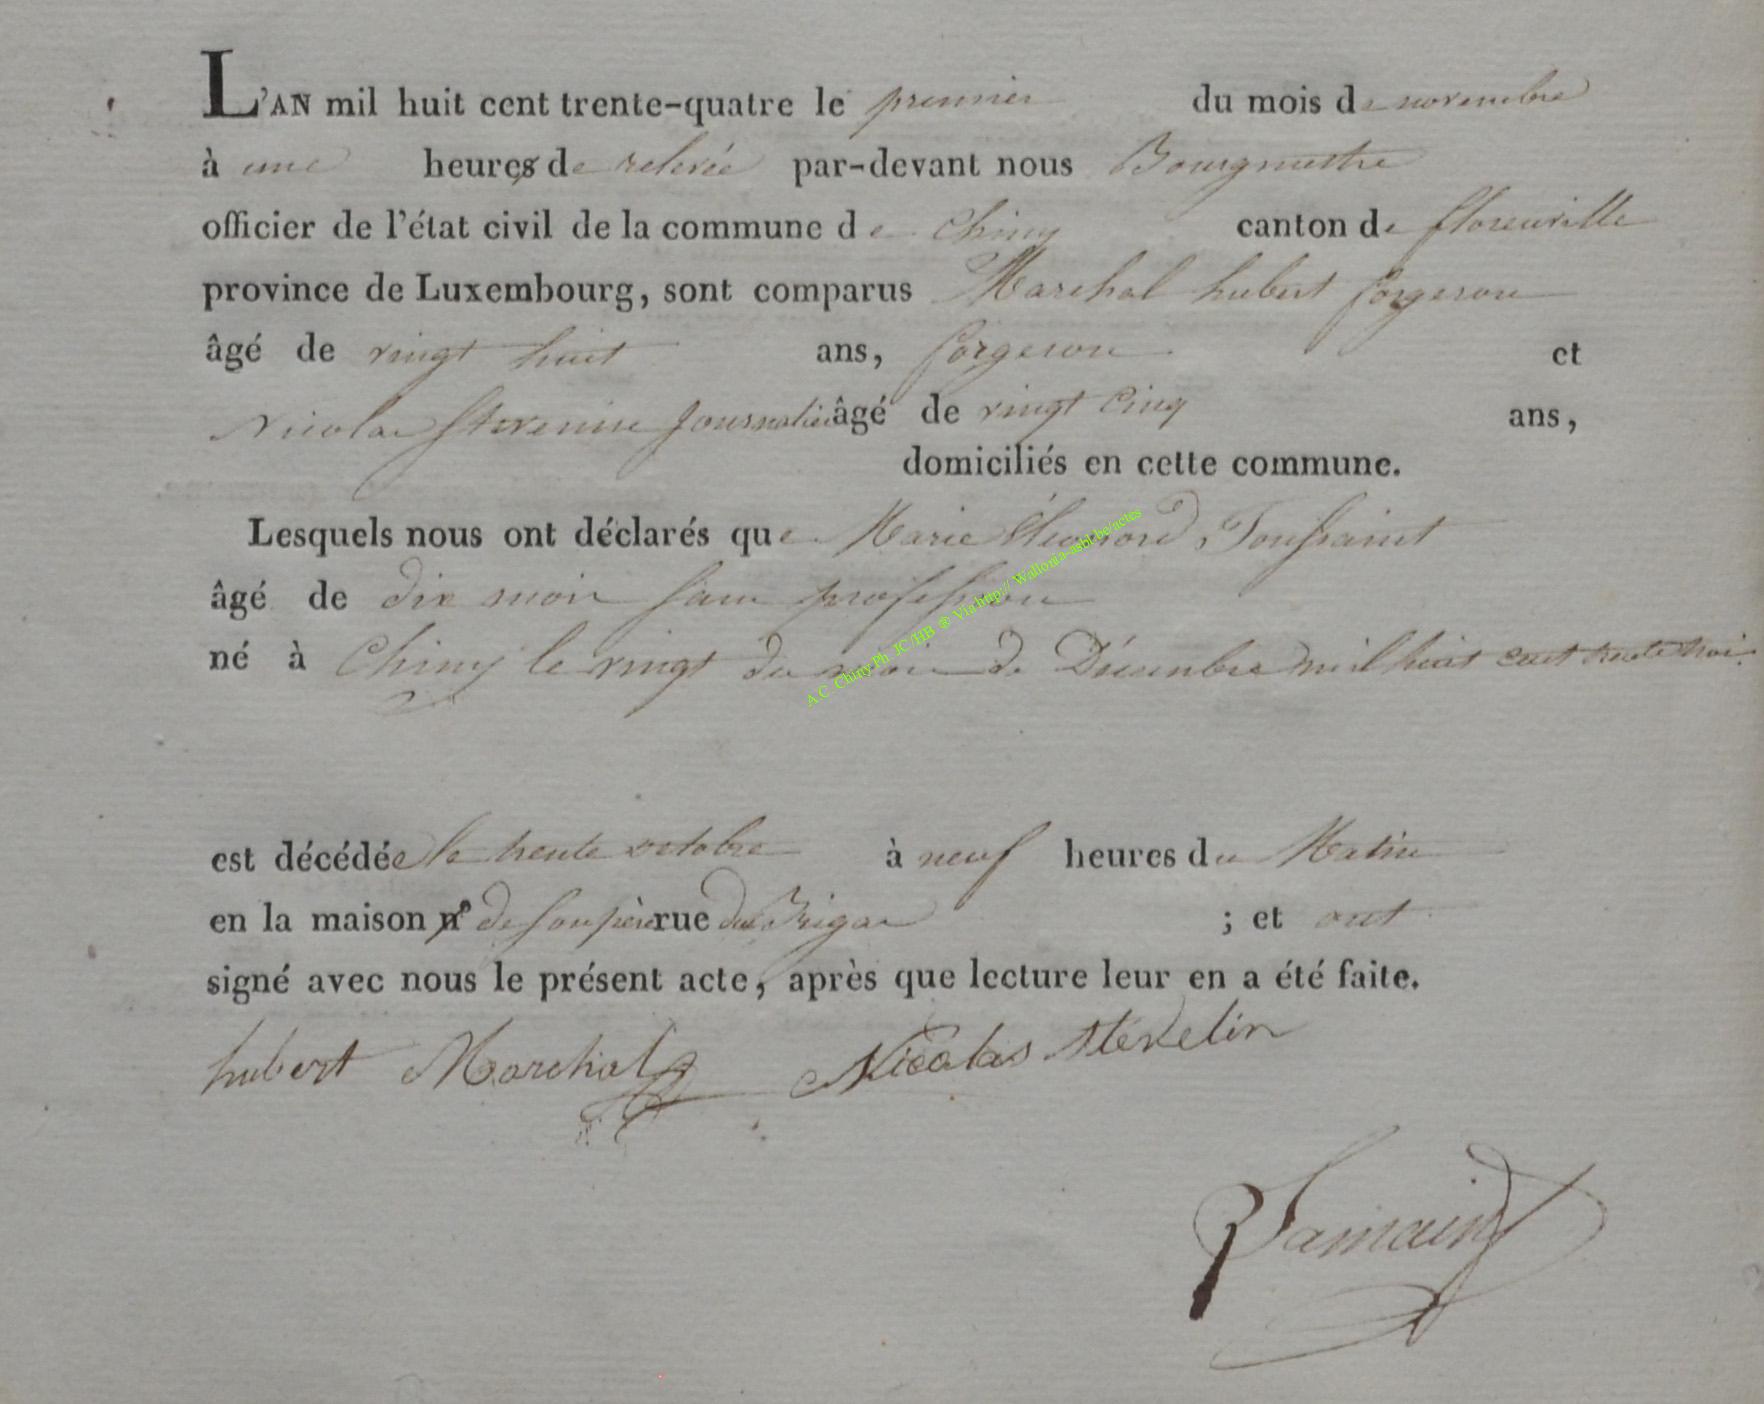 L'AN mil huit cent trente-quatre le premier du mois de novembre
à une heures de relevée par-devant nous Bourgmestre
officier de l'état civil de la commune de Chiny canton de florenville
province de Luxembourg, sont comparus Marchal hubert forgeron
âgé de vingt huit ans, forgeron et
Nicolas Journalier âgé de vingt Cinq ans,
domiciliés en cette commune.
Lesquels nous ont déclarés que Marie Touſsaint
âgé de dix mois sans profeſsion
né à Chiny le vingt du mois de Décembre mil huit cent trente trois.
est décédée le trente octobre à neuf heures du Matin
en la maison n° de son père rue du ; et ont
signé avec nous le présent acte, après que lecture leur en a été faite.
hubert Marchal Nicolas stevelin
A.C. Chiny Ph JC/HB @ Via http:// Wallonia-asbl.be/actes